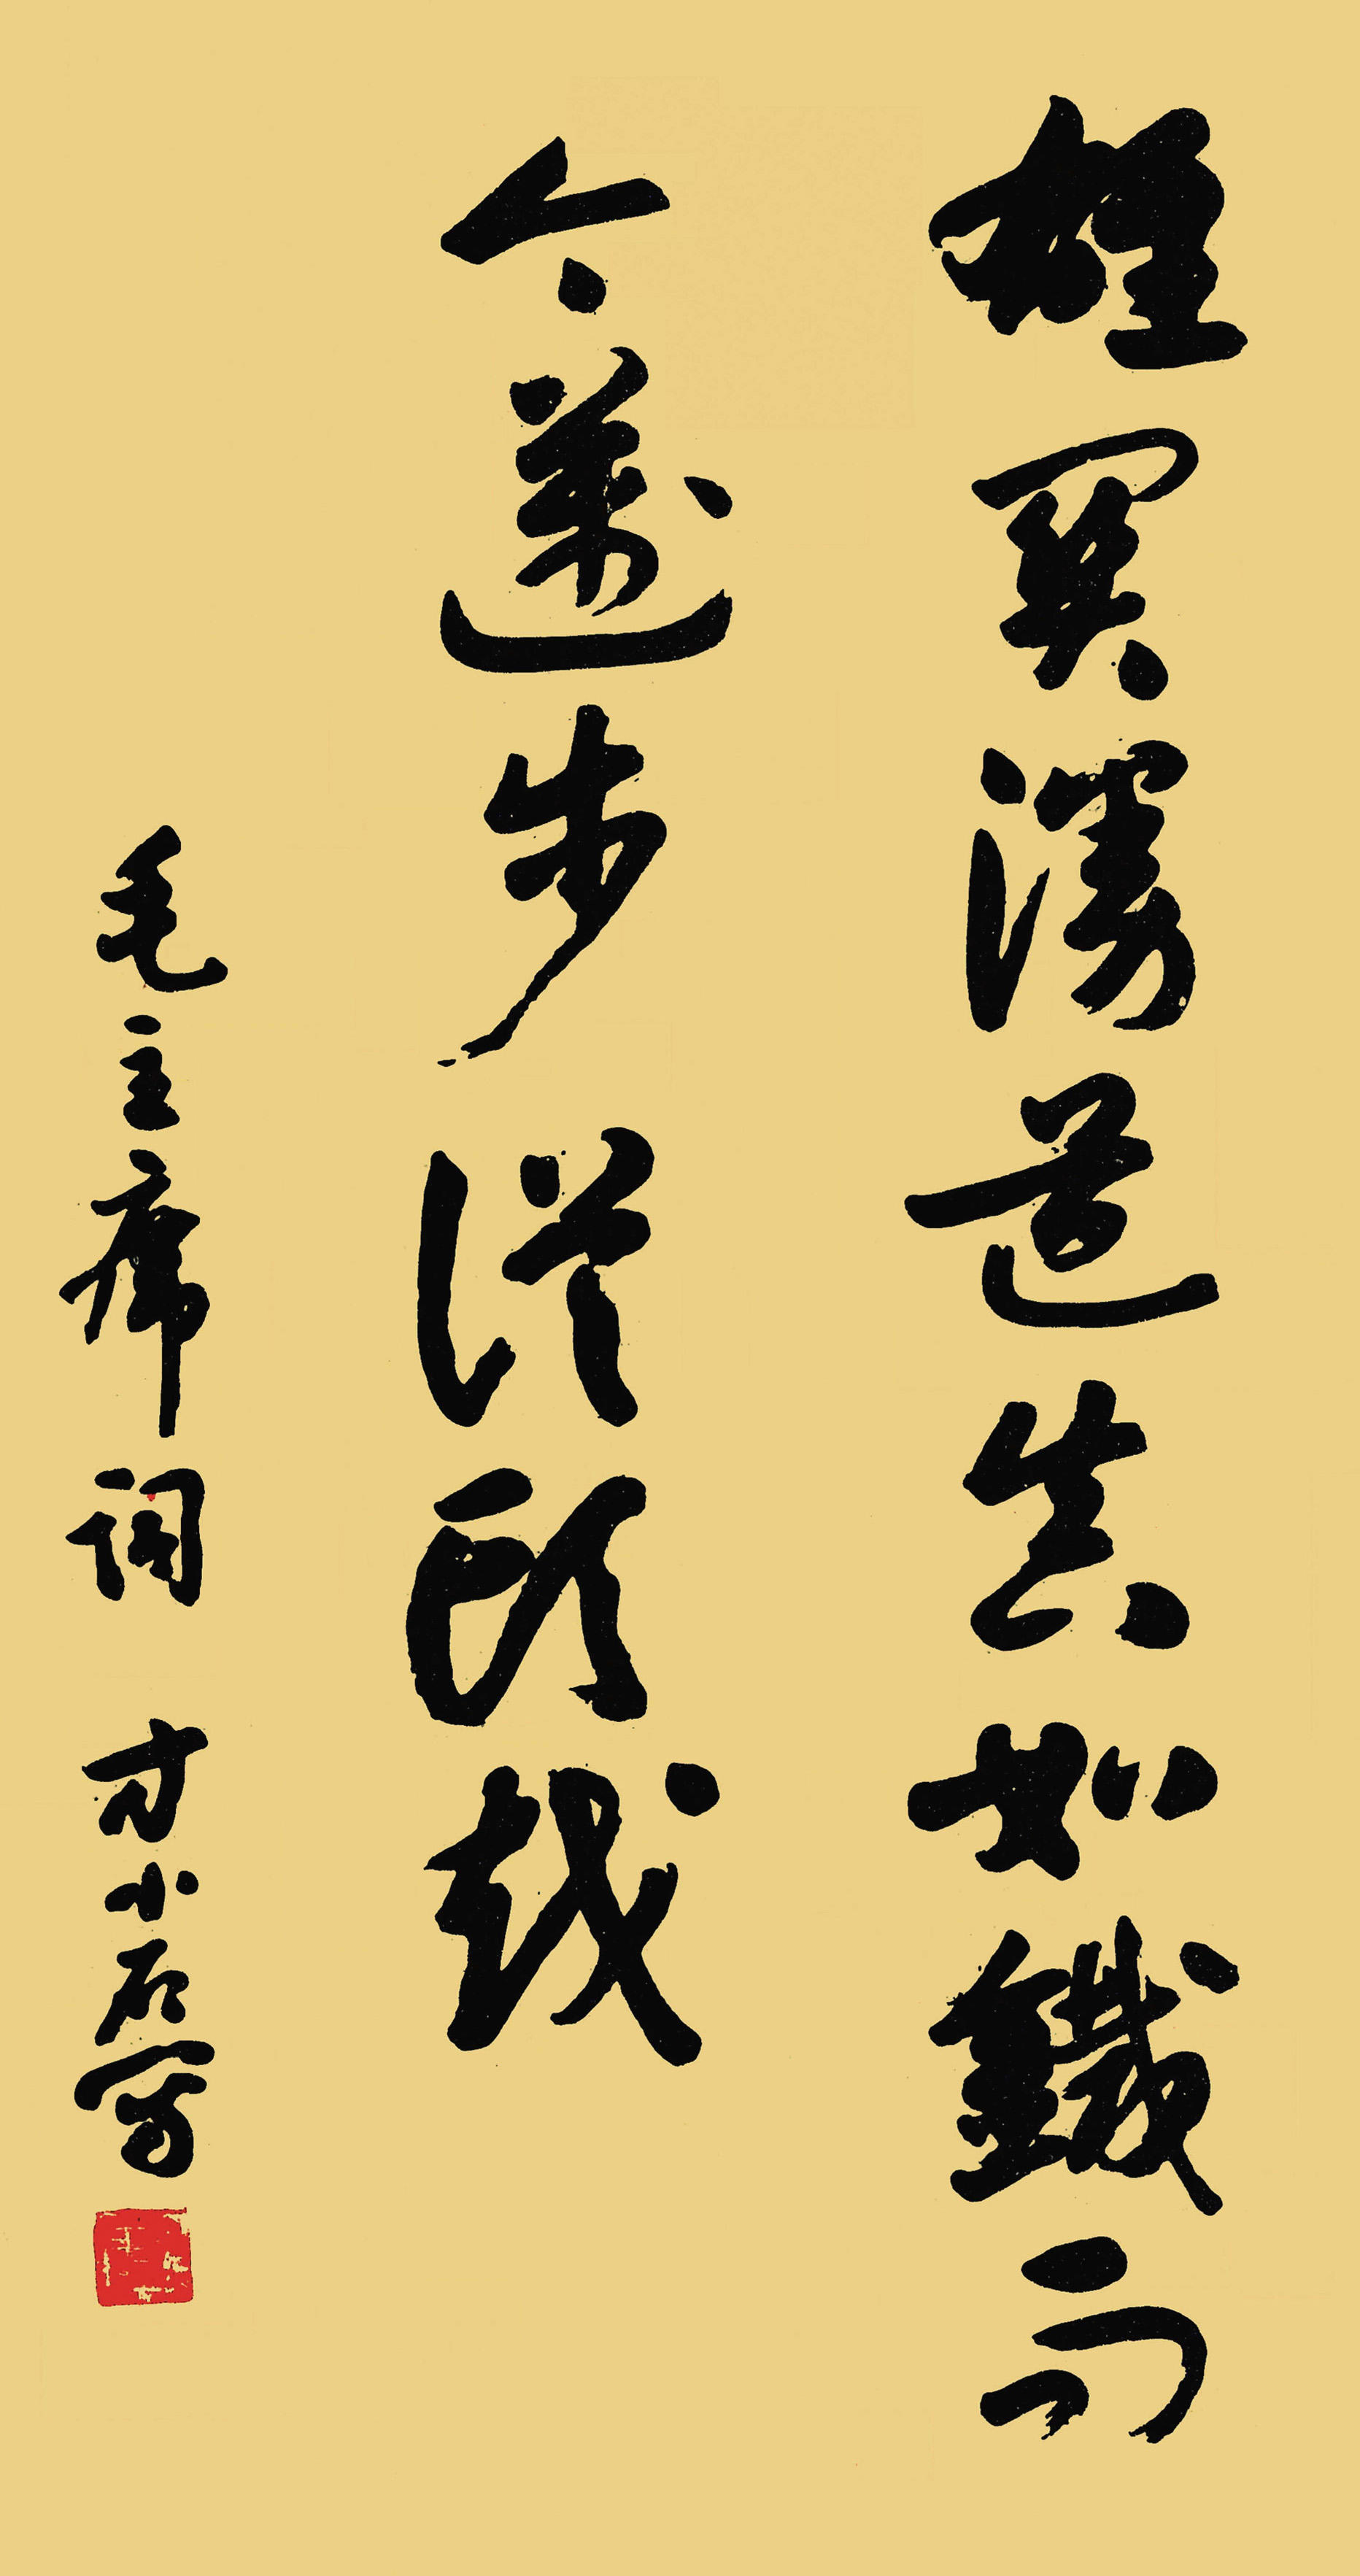 雄關漫道真如鐵而
今邁步從頭越
毛主席詞 方小石寫